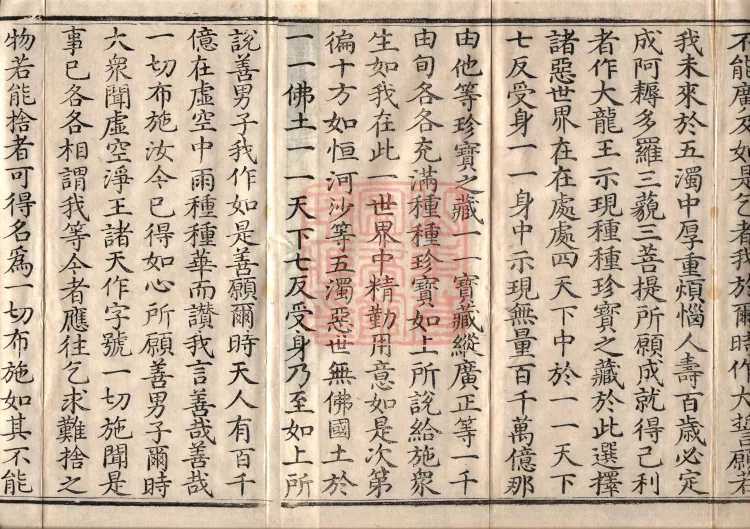 不能廣及如是乞者我於爾時作大誓願若
我未來於五濁中厚重煩惱人壽百歲必定
成阿耨多羅三藐三菩提所願成就得己利
者作大龍王示現種種珍寶之藏於此選擇
諸惡世界在在處處四天下中於一一天下
七反受身一一身中示現無量百千萬億那
由他等珍寶之藏一一寶藏縱廣正等一千
由旬各各充滿種種珍寶如上所說給施衆
生如我在此一世界中精勤用意如是次第
徧十方如恒河沙等五濁惡世無佛國土於
一一佛土一一天下七反受身乃至如上所
說善男子我作如是善願爾時天人有百千
億在虛空中雨種種華而讚我言善哉善哉
一切布施汝今已得如心所願善男子爾時
大衆聞虛空淨王諸天作字號一切施聞是
事已各各相謂我等今者應往乞求難捨之
物若能捨者可得名爲一切布施如其不能